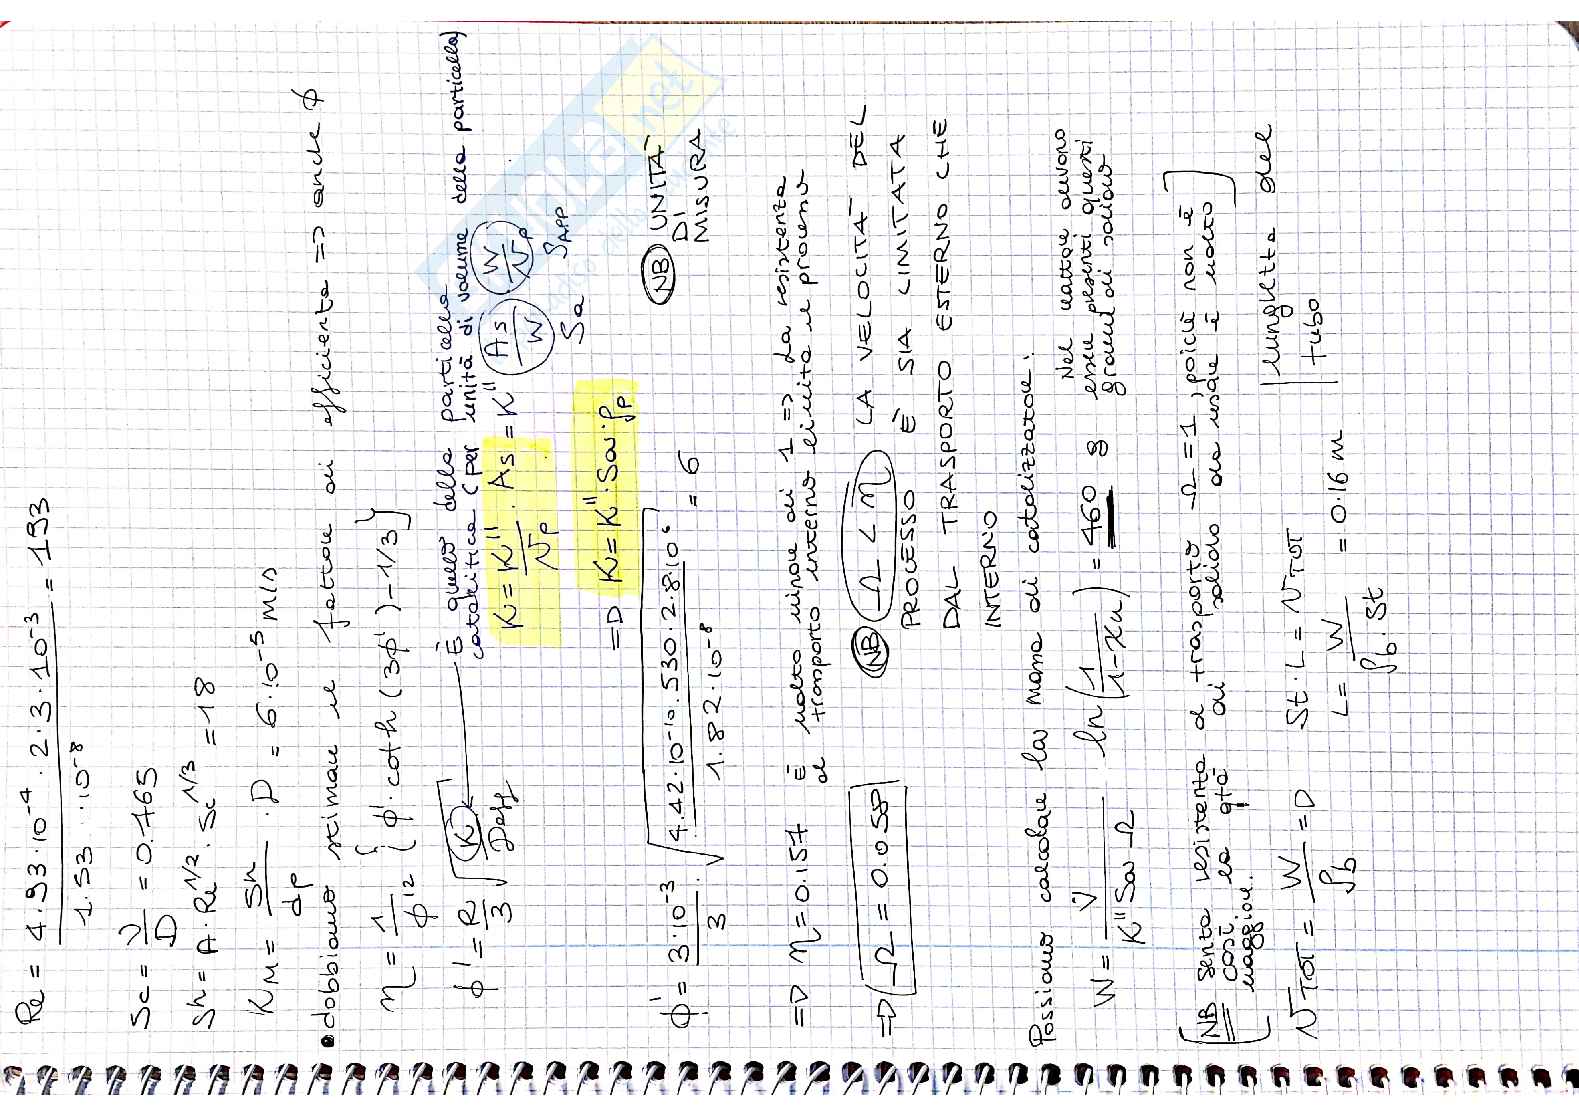 Re = 4.93·10⁻⁴ · 2·3·10⁻³ / 1.53·10⁻⁸ = 193
Sc = ν/D = 0.465
Sh = A·Re^1/2 · Sc^1/3 = 18
KM = Sh/dp · D = 6·10⁻⁵ m/s
• dobbiamo stimare il fattore di efficienza => anche ϕ
η = 1/ϕ'² { ϕ'·coth(3ϕ')-1/3}
È quello della particella
catalitica (per unità di volume della particella)
ϕ' = R/3 √(K/Deff)
K = K''/Vp · As = K'' (As/W) (W/Vp)
Sa ρAPP
=D K = K''·Sa·ρp
NB UNITÀ
DI
MISURA
ϕ' = 3·10⁻³/3 · √(4.42·10⁻¹⁰·530·2.8·10⁶ / 1.82·10⁻⁸) = 6
=D η = 0.157 È molto minore di 1 => La resistenza
al trasporto interno limita il processo
=D Ω = 0.058
NB Ω < η LA VELOCITÀ DEL
PROCESSO È SIA LIMITATA
DAL TRASPORTO ESTERNO CHE
INTERNO
Possiamo calcolare la massa di catalizzatore.
W = V̇ / K'' Sa Ω ln(1/1-Xu) = 460 g
Nel reattore devono
essere presenti questi
grammi di solido
[NB Senza resistenza al trasporto Ω=1, poiché non è
così la qtà di solido da usare è molto
maggiore.]
VTOT = W/ρb =D St·L = VTOT
L = W/ρb·St = 0.16 m
lunghezza del
tubo